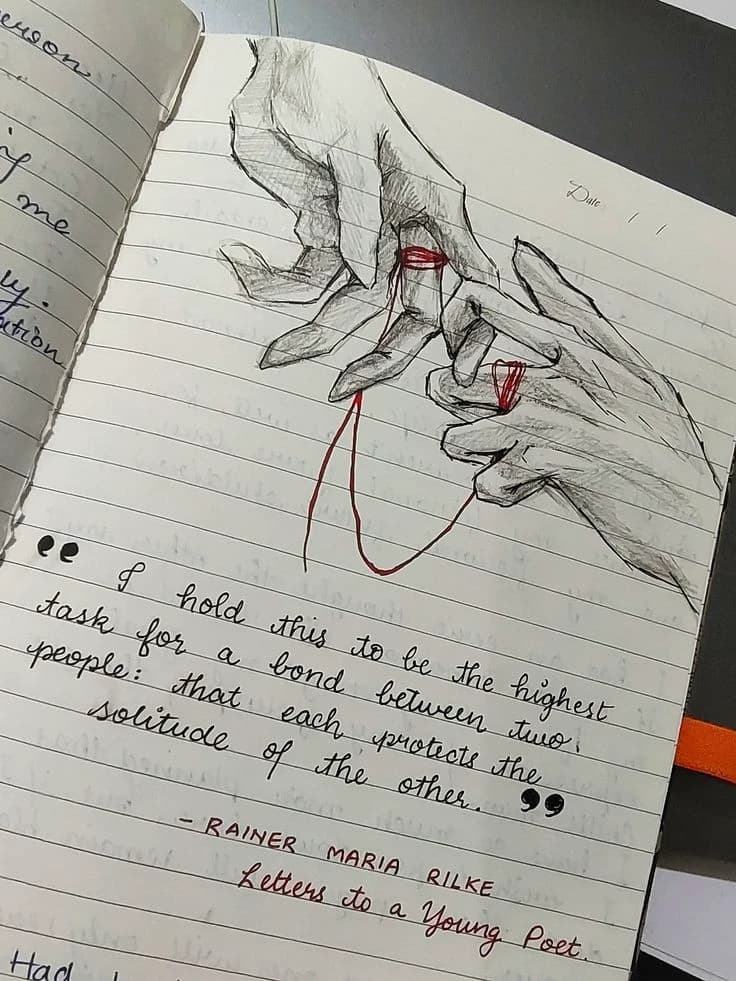 erson
me
ly.
ution
Date / /
“ I hold this to be the highest
task for a bond between two
people: that each protects the
solitude of the other. ”
- RAINER MARIA RILKE
Letters to a Young Poet.
Had